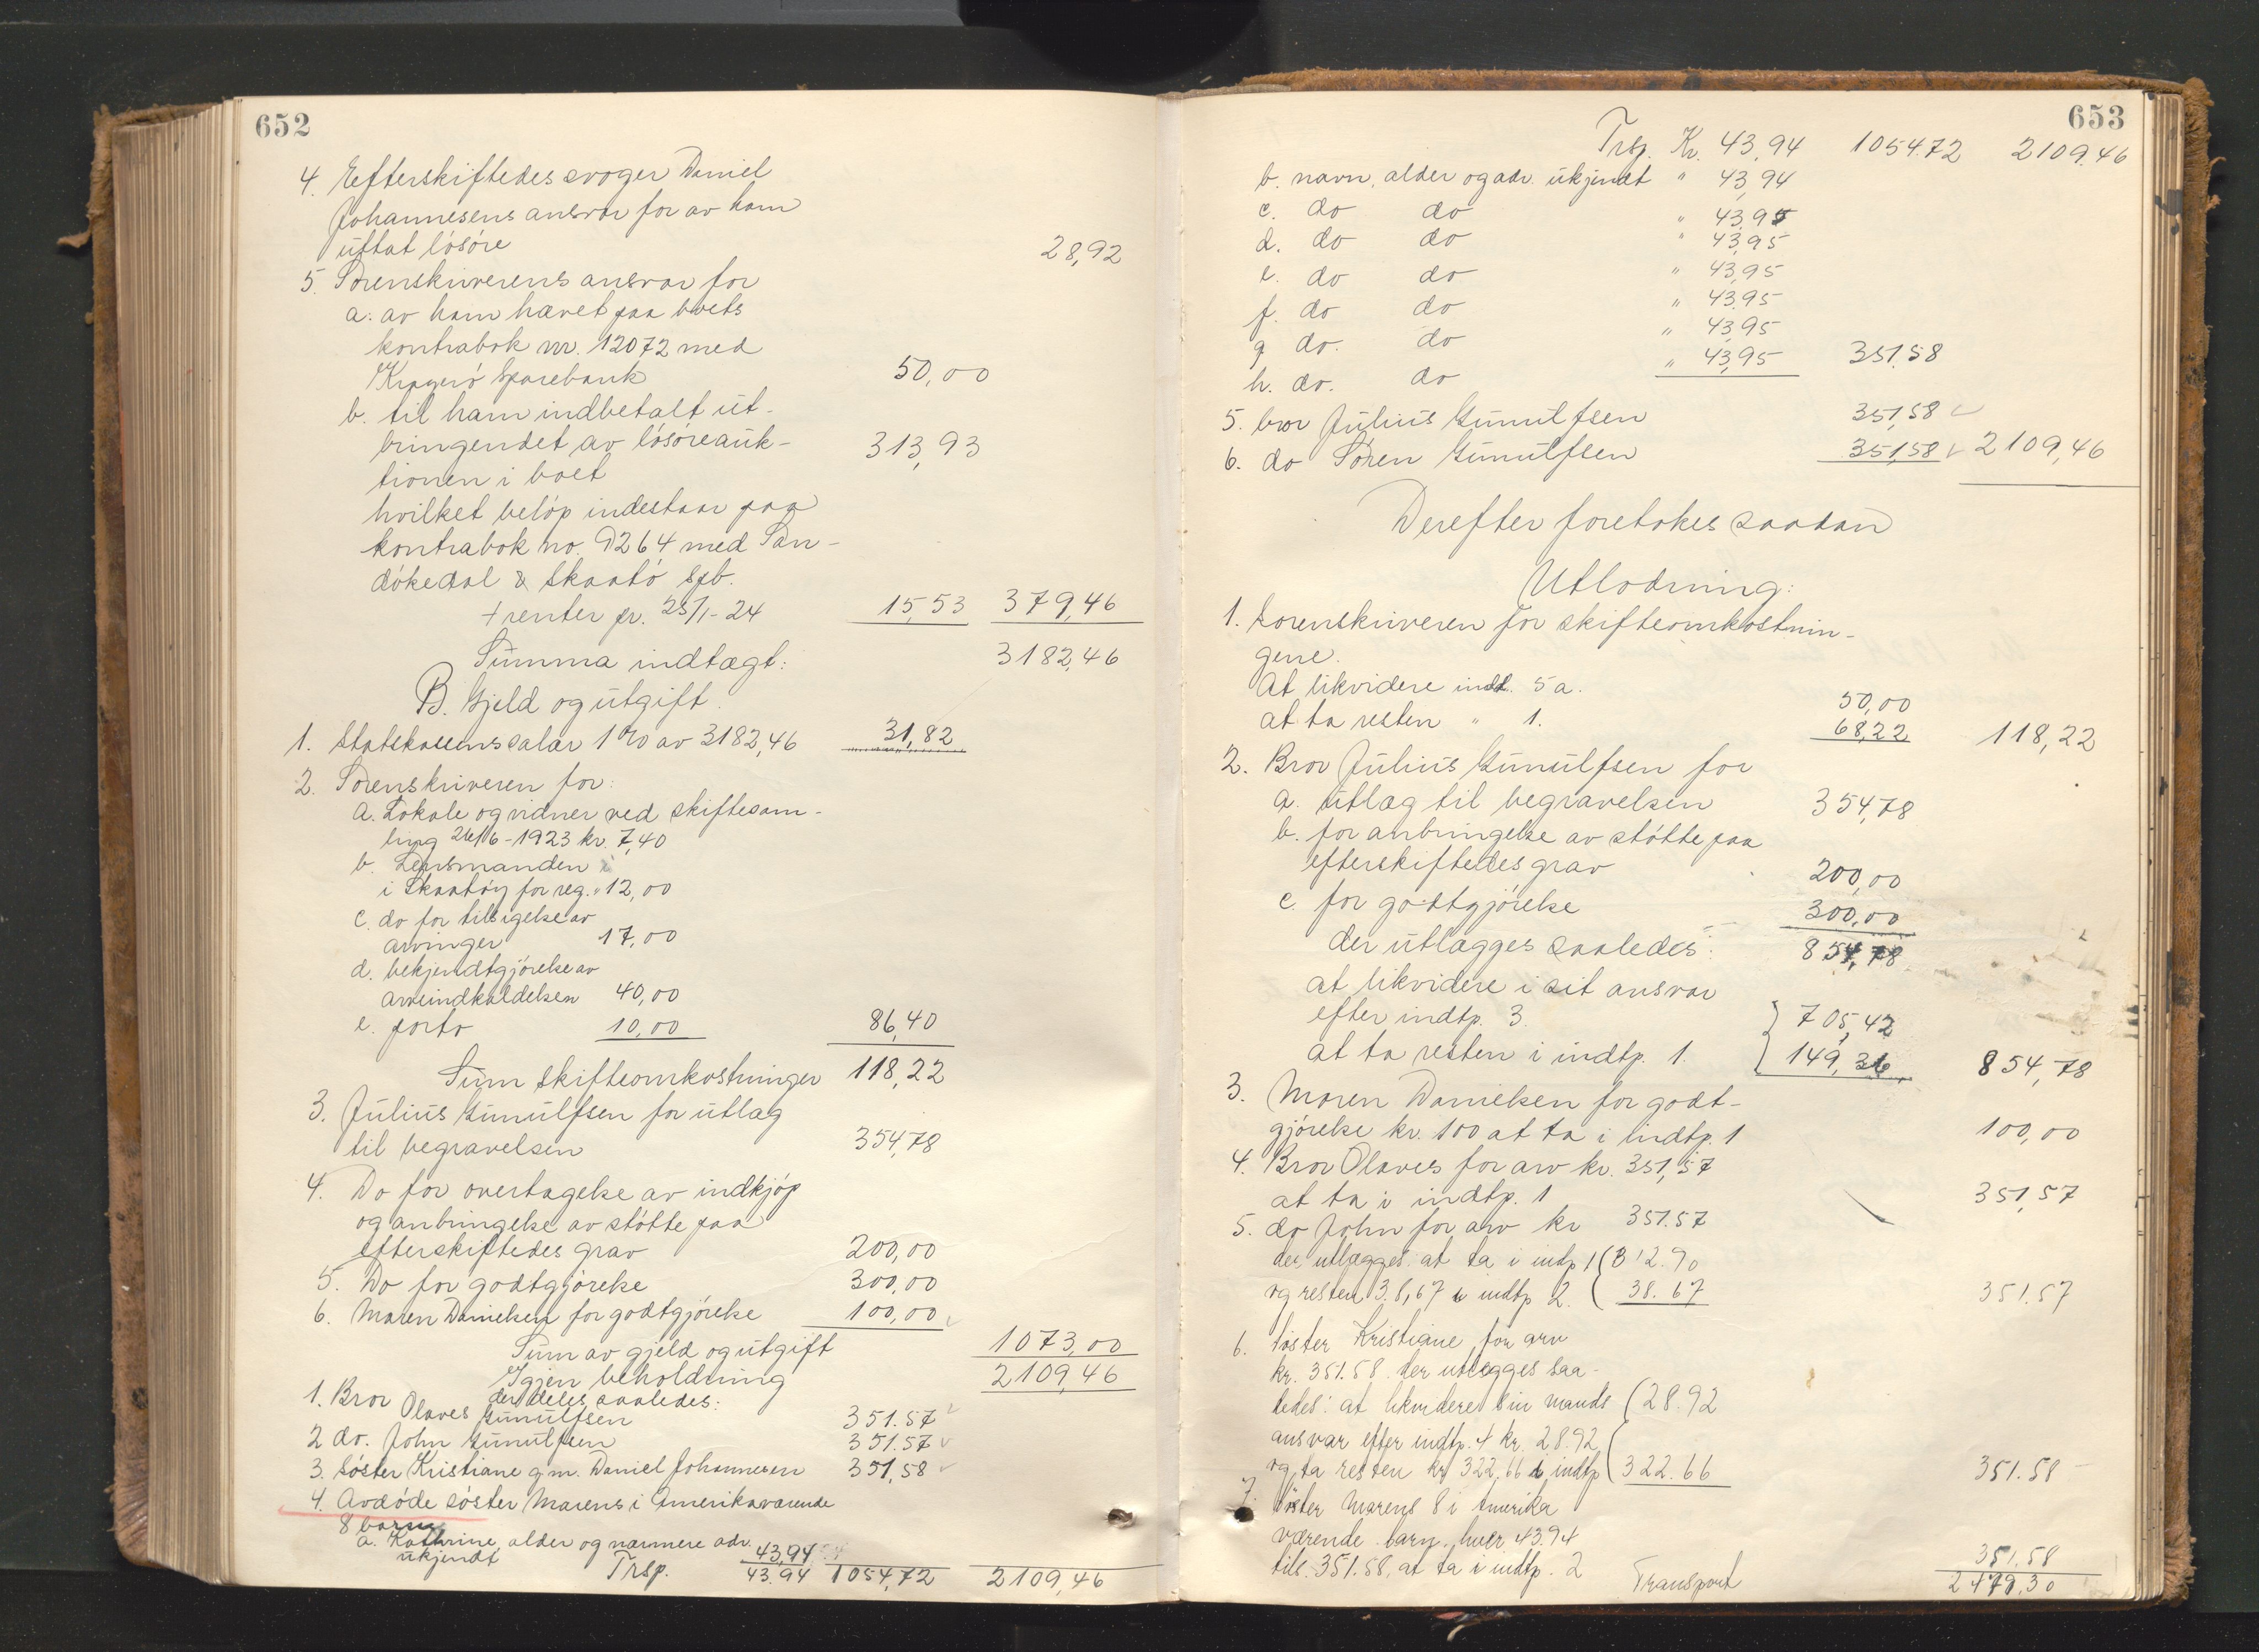 652
4. Efterskiftedes svoger Daniel
Johannesens ansvar for av ham
uttat lösöre 28,92
5. Sorenskriverens ansvar for
a. av ham hævet paa boets
kontrabok nr. 12072 med
Kragerö Sparebank 50,00
b. til ham indbetalt ut-
bringendet av lösöreauk- 313,93
tionen i boet
hvilket belöp indestaar paa
kontrabok no. 9264 med San-
dökedal & Skaatö Spb.
+ renter pr. 25/1-24 15,53 379,46
Summa indtægt: 3182,46
B. Gjeld og utgift.
1. Statskassens salær 1% av 3182,46 31,82
2. Sorenskriveren for:
a. Lokale og vidner ved skiftesam-
ling 26/6-1923 kr. 7,40
b. Lensmanden
i Skaatöy for reg. " 12,00
c. do for tilsigelse av
arvinger 17,00
d. bekjendtgjörelse av
arveindkaldelsen 40,00
e. porto 10,00 86,40
Sum skifteomkostninger 118,22
3. Julius Gunulfsen for utlæg
til begravelsen 354,78
4. Do for overtagelse av indkjöp
og anbringelse av stötte paa
efterskiftedes grav 200,00
5. Do for godtgjörelse 300,00
6. Maren Danielsen for godtgjörelse 100,00
Sum av gjeld og utgift 1073,00
Igjen beholdning 2109,46
der deles saaledes:
1. Bror Olaves Gunulfsen 351.57
2 do. John Gunulfsen 351.57
3. Söster Kristiane g.m. Daniel Johannesen 351,58
4. Avdöde söster Marens i Amerika værende
8 barn
a. Kathrine, alder og nærmere adr.
ukjendt 43,94
Trsp. 43.94 1054,72 2109,46
653
Trsp. Kr. 43,94 1054.72 2109.46
b. navn, alder og adr. ukjendt " 43,94
c. do do " 43,95
d. do do " 43,95
e. do do " 43,95
f. do do " 43.95
g do. do " 43,95
h. do. do " 43,95 351.58
5. bror Julius Gunulfsen 351,58
6. do Sören Gunulfsen 351,58 2109,46
Derefter foretokes saadan
Utlodning:
1. Sorenskriveren for skifteomkostnin-
gene.
At likvidere indt. 5a. 50,00
at ta resten " 1. 68,22 118,22
2. Bror Julius Gunulfsen for
a. utlæg til begravelsen 354,78
b. for anbringelse av stötte paa
efterskiftedes grav 200,00
c. for godtgjörelse 300,00
der utlægges saaledes: 854,78
at likvidere i sit ansvar
efter indtp. 3. 705,42
at ta resten i indtp. 1. 149,36 854,78
3. Maren Danielsen for godt-
gjörelse kr. 100 at ta i indtp. 1 100,00
4. Bror Olaves for arv kr. 351,57
at ta i indtp. 1 351,57
5. do John for arv kr 351.57
der utlægges: at ta i indtp 1 312.90
og resten 38,67 i indtp 2. 38.67 351.57
6. Söster Kristiane for arv
kr. 351.58 der utlægges saa-
ledes: at likvidere sin mands 28.92
ansvar efter indtp. 4 kr. 28.92
og ta resten kr 322.66 i indtp 322.66 351.58
7. Söster Marens 8 i Amerika
værende barn, hver 43.94
tils. 351.58, at ta i indtp. 2 351.58
Transport 2479.30